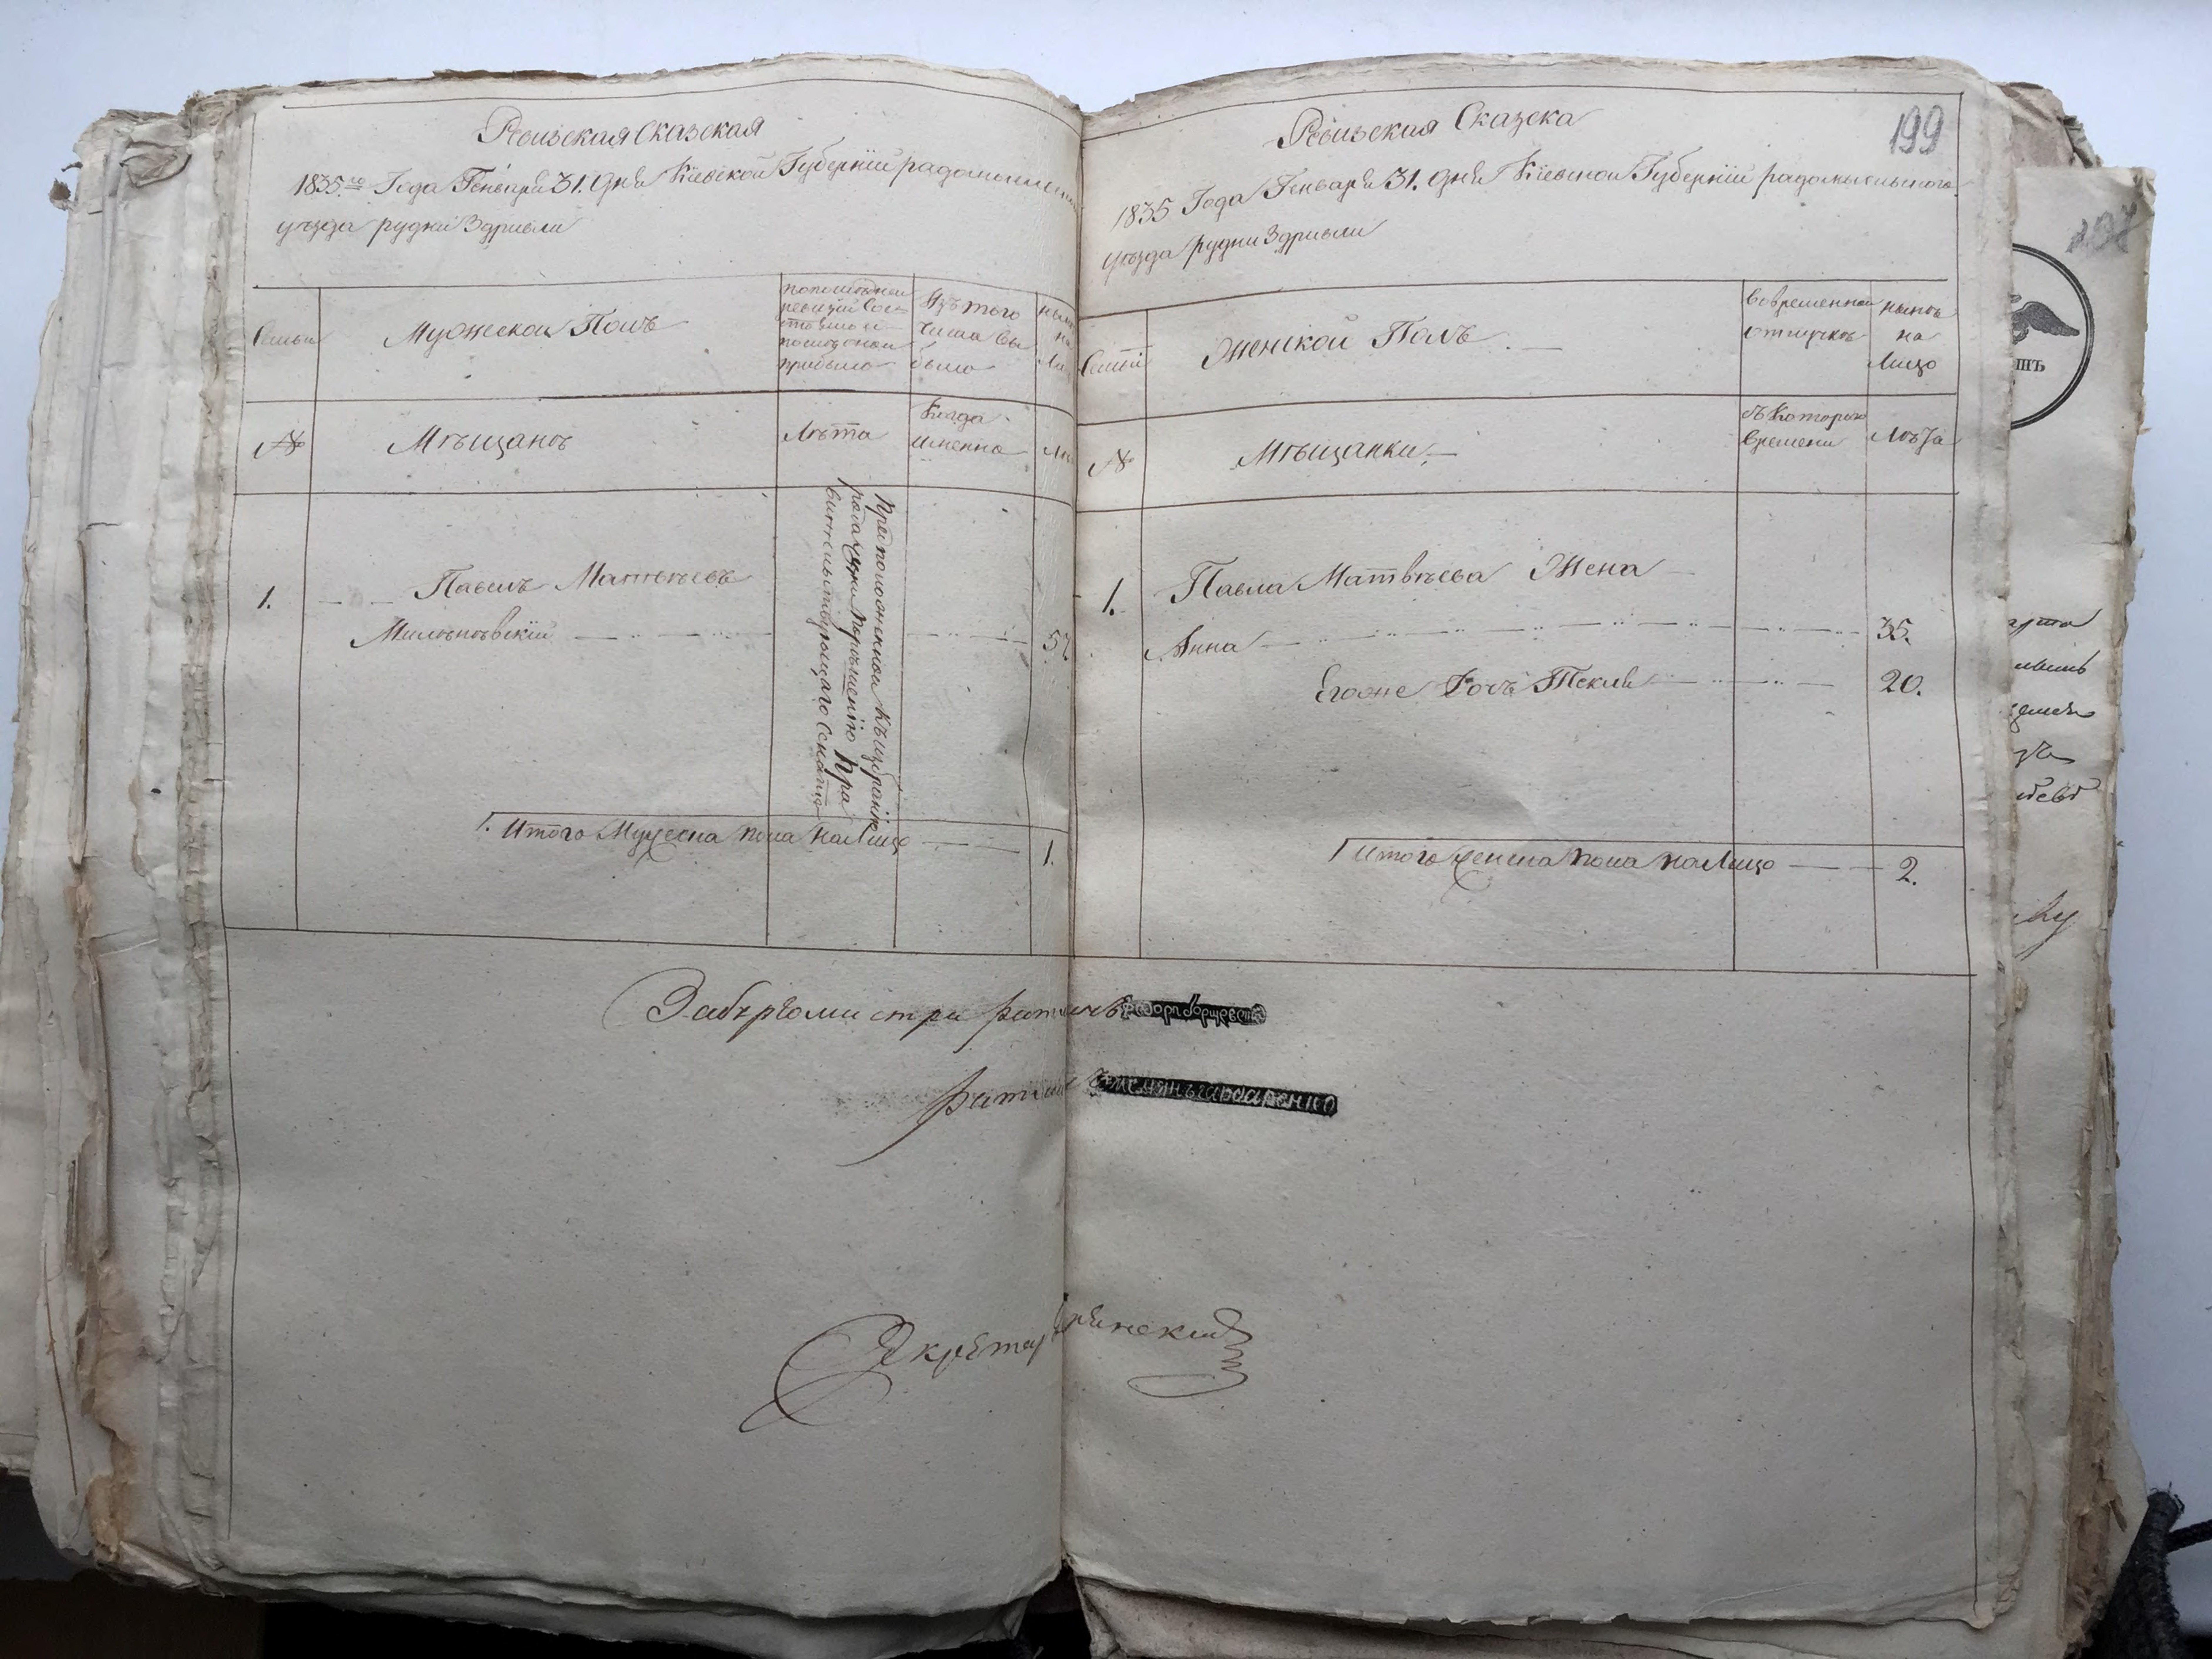 Ревизская Сказская
1835го Года Генваря 31. дня Кіевской Губерніи радомысльского
уѣзда рудни Здривли
Семьи
Мужеской Полъ
попослѣдней
ревизіи Сос
тояло и
послѣ оной
прибыло
Изъ того
числа вы
было
ныне
на
Ли
№
Мѣщанѣ
Лѣта
Когда
именно
1.
Павелъ Матвѣевъ
Милѣновскій
Предположенной Къ избранію
рода жизни По рѣшенію Пра
вительствующаго Сената
52
Итого Мужеска пола на Лицо
1.
Ревизская Сказка
199
1835 Года Генваря 31. дня Кіевской Губерніи радомысльского
уѣзда рудни Здривли
Семьи
Женской Полъ
вовременной
отлучкѣ
нынѣ
на
Лицо
№
Мѣщанки
съ Которого
времени
Лѣта
1.
Павла Матвѣева Жена
Анна
35.
Егоже Дочь Текля
20.
Итого женска пола на Лицо
2.
За бурмистра ратманъ
ратманъ
Секретарь